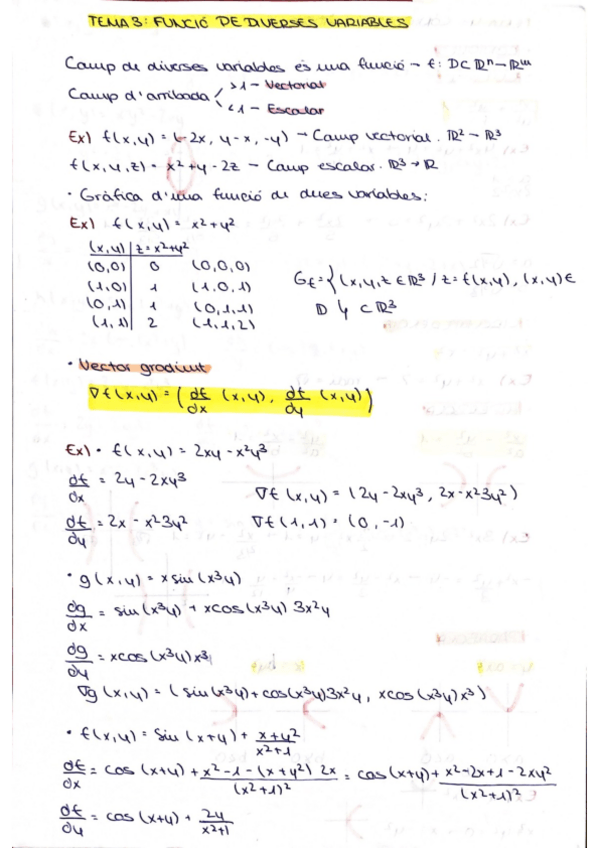 TEMA 3: FUNCIÓ DE DIVERSES VARIABLES
Camp de diverses variables és una funció → f: D⊂ℝⁿ→ℝᵐ
Camp d'arribada
>1 - Vectorial
<1 - Escalar
Ex) f(x,y) = (-2x, y-x, -y) → Camp vectorial. ℝ² → ℝ³
f(x,y,z) = x²+y-2z → Camp escalar. ℝ³→ℝ
· Gràfica d'una funció de dues variables:
Ex) f(x,y) = x²+y²
(x,y) | z=x²+y²
(0,0) | 0 (0,0,0)
(1,0) | 1 (1,0,1)
(0,1) | 1 (0,1,1)
(1,1) | 2 (1,1,2)
Gf = {(x,y,z ∈ ℝ³ / z=f(x,y), (x,y) ∈
D} ⊂ ℝ³
· Vector gradient
∇f(x,y) = (df/dx (x,y), df/dy (x,y))
Ex) · f(x,y) = 2xy - x²y³
df/dx = 2y - 2xy³
∇f(x,y) = (2y-2xy³, 2x-x²3y²)
df/dy = 2x - x²3y²
∇f(1,1) = (0,-1)
· g(x,y) = x sin(x³y)
dg/dx = sin(x³y) + xcos(x³y) 3x²y
dg/dy = xcos(x³y)x³
∇g(x,y) = (sin(x³y)+cos(x³y)3x²y, xcos(x³y)x³)
· f(x,y) = sin(x+y) + (x+y²)/(x²+1)
df/dx = cos(x+y) + (x²-1-(x+y²)2x)/(x²+1)² = cos(x+y) + (x²-2x+1-2xy²)/(x²+1)²
df/dy = cos(x+y) + 2y/(x²+1)